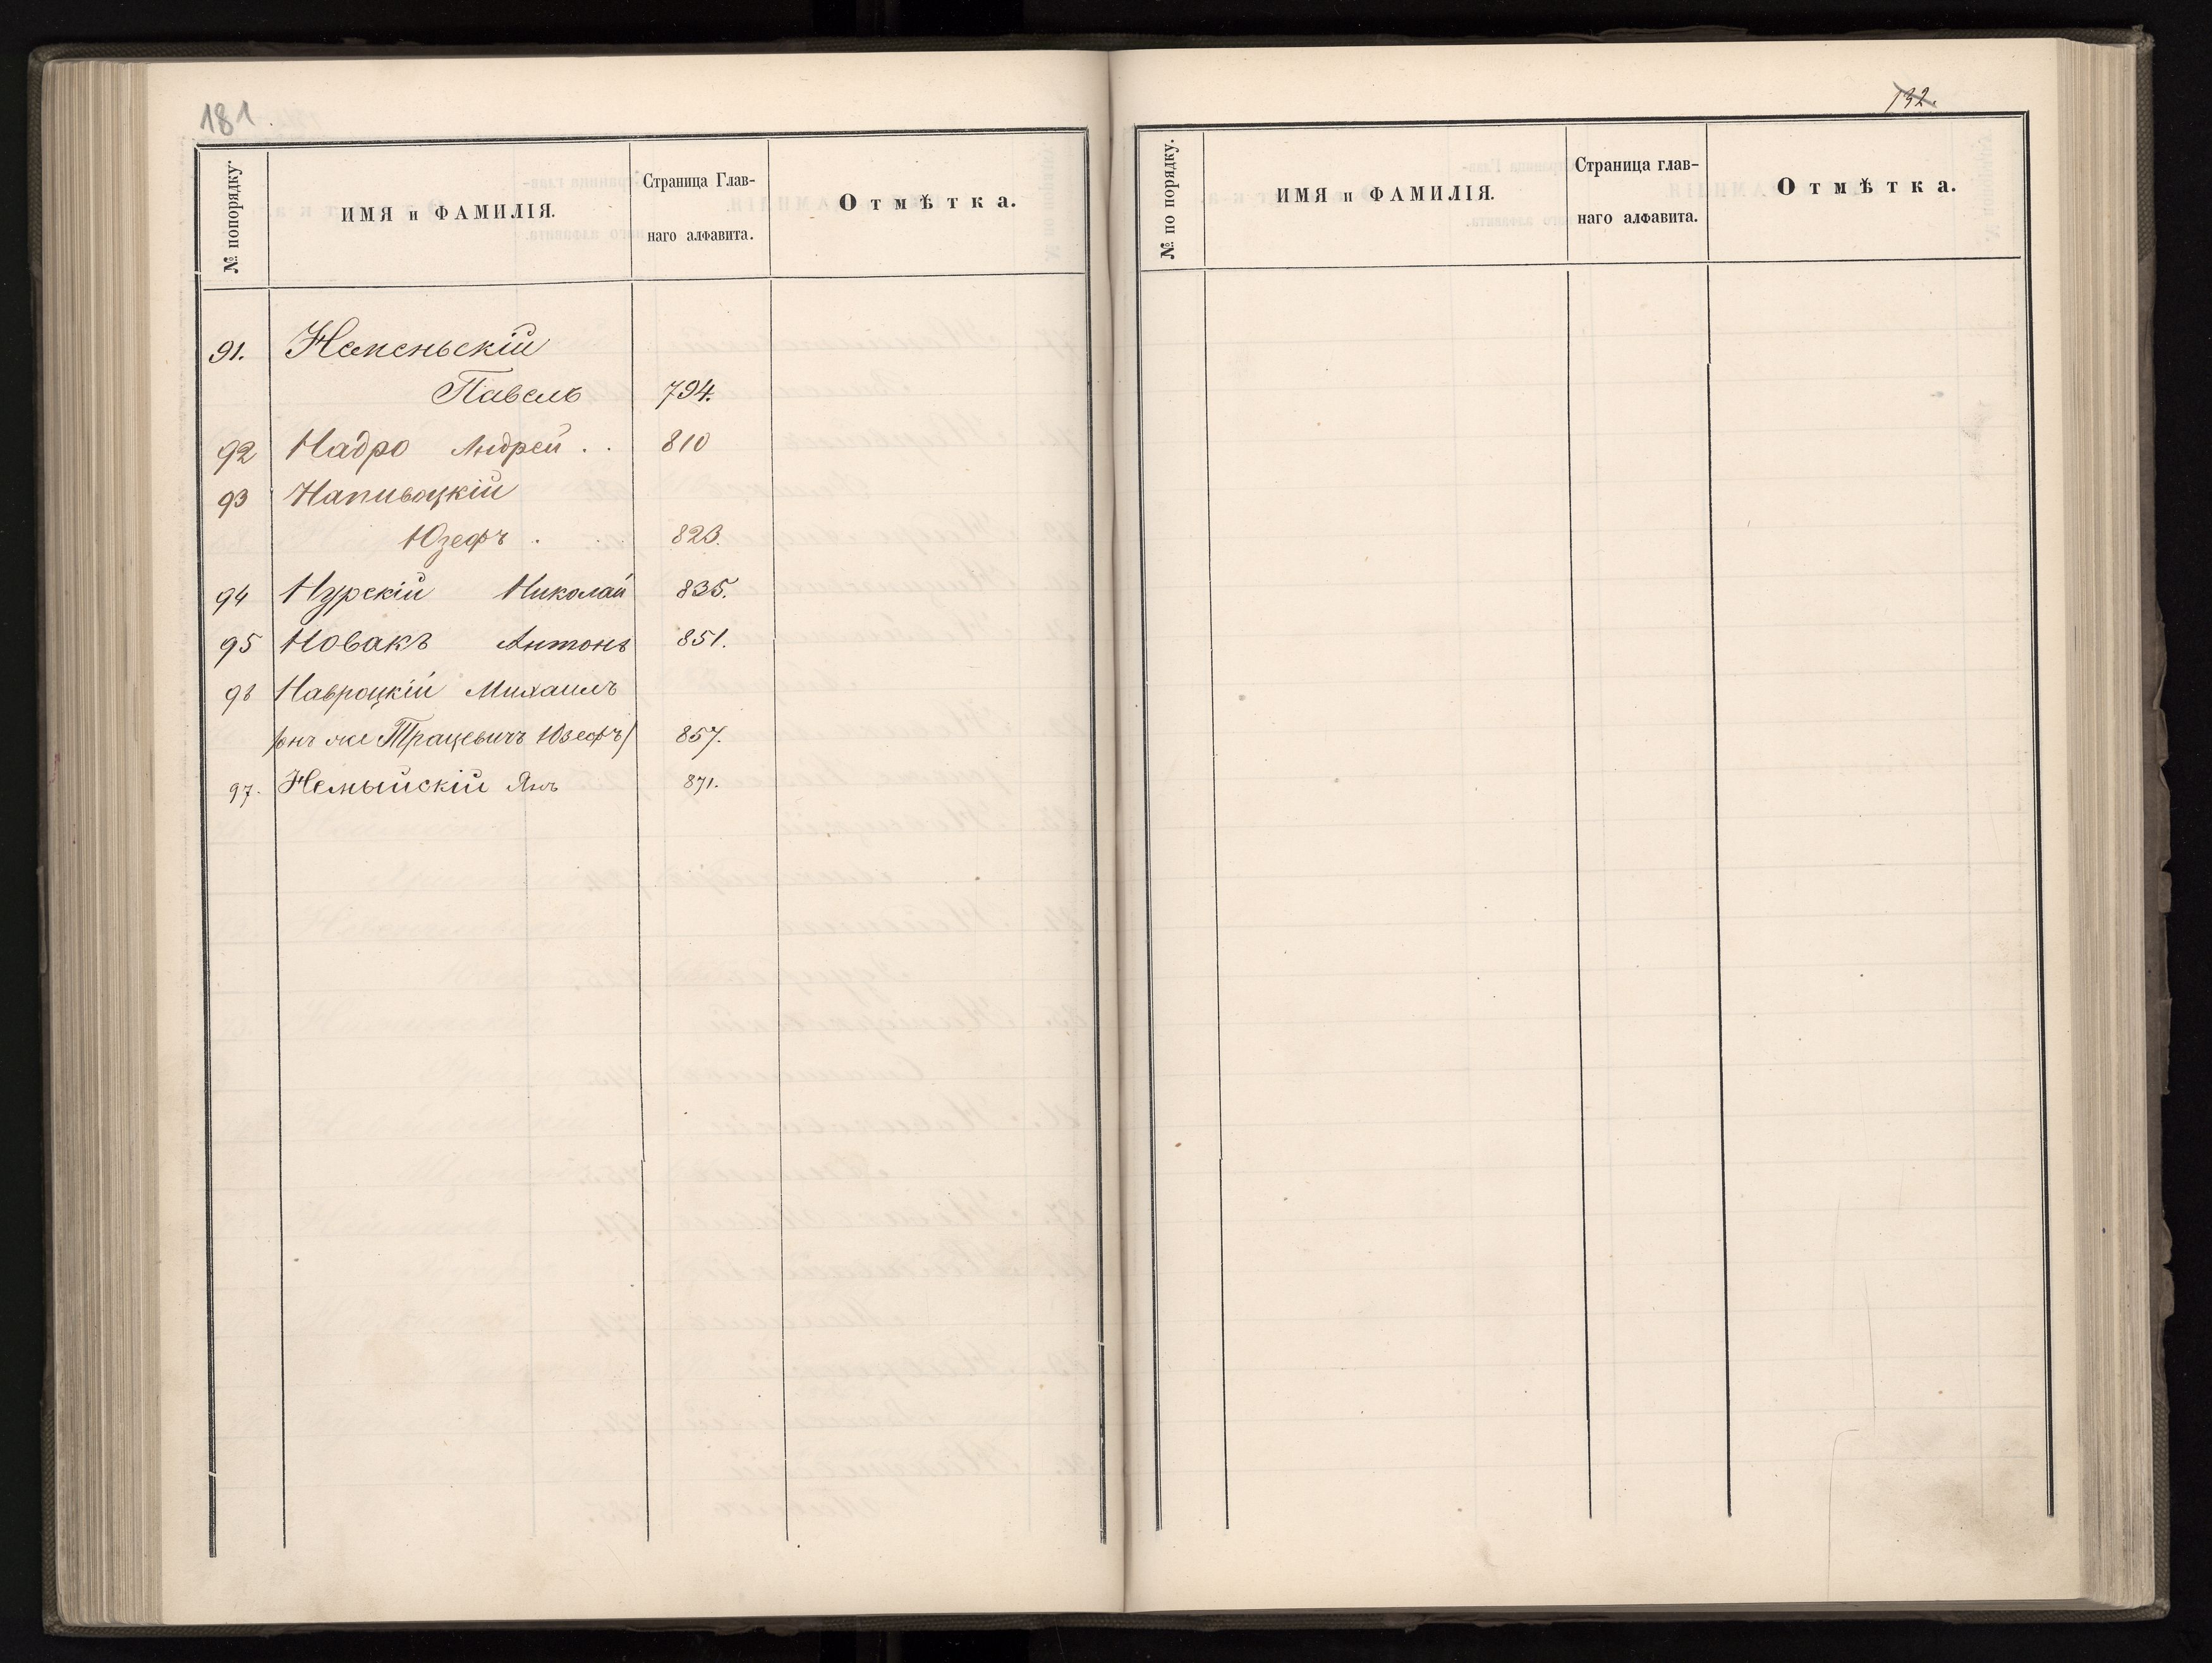 181.
№ попорядку.
ИМЯ и ФАМИЛІЯ.
Страница Глав-
наго алфавита.
Отмѣтка.
91. Немсньскій
Павелъ 794.
92 Надро Андрей . . 810
93 Напивоцкій
Юзефъ . 823.
94 Нурскій Николай 835.
95 Новакъ Антонъ 851.
96 Навроцкій Михаилъ
/онъ же Трацевичъ Юзефъ/ 857.
97. Немыйскій Янъ 871.
132.
№ по порядку.
ИМЯ и ФАМИЛІЯ.
Страница глав-
наго алфавита.
Отмѣтка.